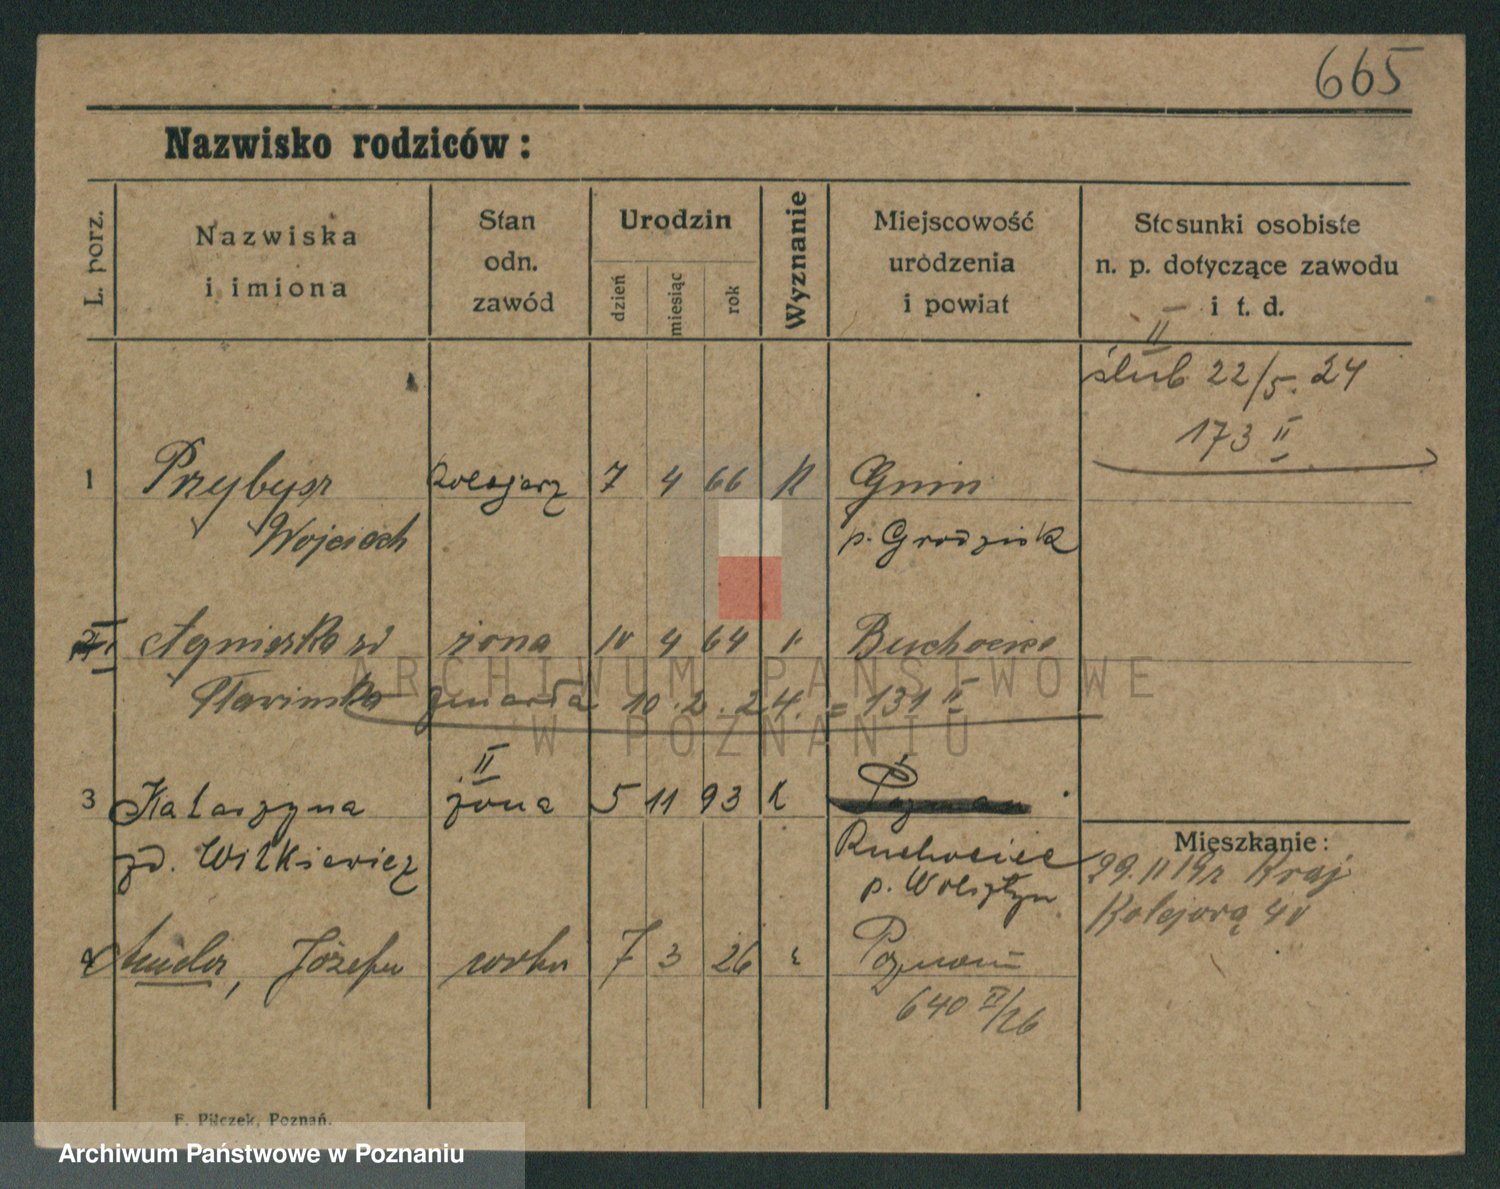 665
Nazwisko rodziców:
L. porz.
Nazwiska
i imiona
Stan
odn.
zawód
Urodzin
dzień
miesiąc
rok
Wyznanie
Miejscowość
urodzenia
i powiat
Stosunki osobiste
n. p. dotyczące zawodu
i t. d.
II
ślub 22/5. 24
173 II
1 Przybysz kolejarz 7 4 66 K Gnin
Wojciech p. Grodzisk
Agnieszka zd żona 10 4 64 " Buchocice
zmarła 10. 2. 24. = 131 II
II
3 Katarzyna żona 5 11 93 k
zd. Wilkiewicz Ruchocice
p. Wolsztyn
4 Józefa córka 7 3 26 Poznań
640 II/26
Mieszkanie:
29. 11 19r Kraj
Kolejorą 40
F. Pilczek, Poznań.
ARCHIWUM PAŃSTWOWE
W POZNANIU
Archiwum Państwowe w Poznaniu